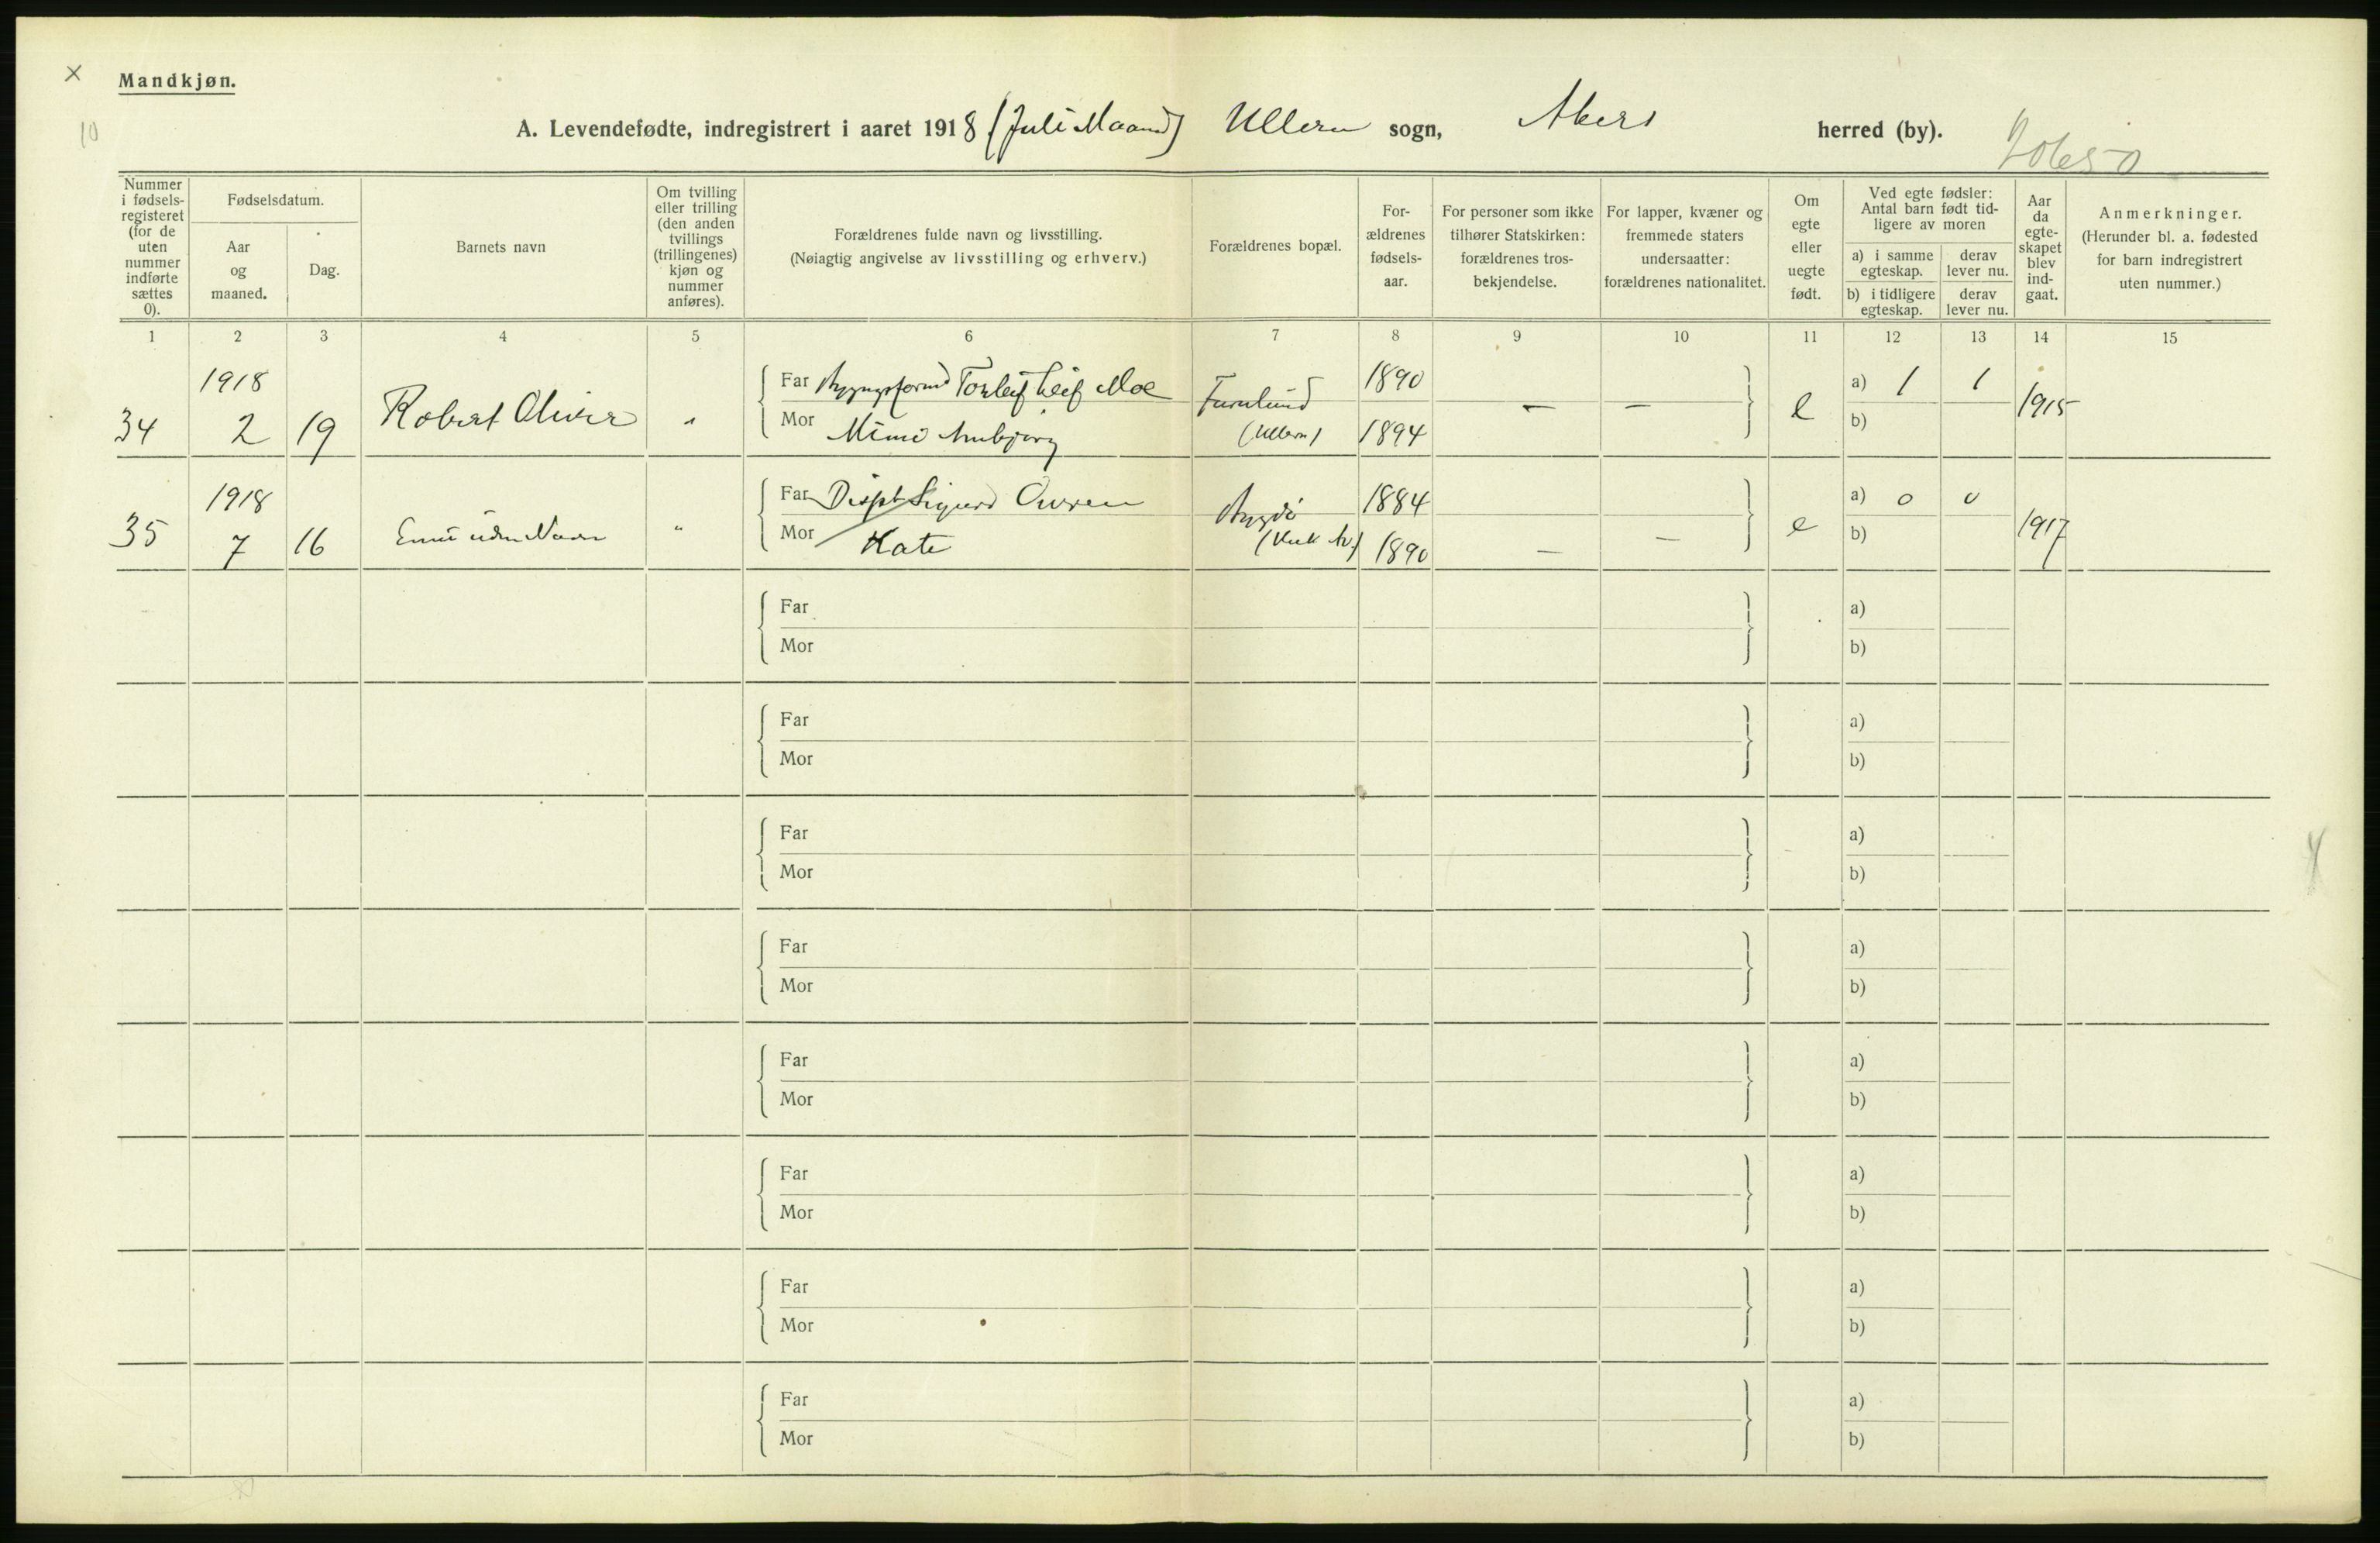 Mandkjøn.
10
A. Levendefødte, indregistrert i aaret 1918 (Juli Maaned) Ullern sogn, Akers herred (by).
Nummer i fødsels-registeret (for de uten nummer indførte sættes 0).
Fødselsdatum.
Aar og maaned.
Dag.
Barnets navn
Om tvilling eller trilling (den anden tvillings (trillingenes) kjøn og nummer anføres).
Forældrenes fulde navn og livsstilling.
(Nøiagtig angivelse av livsstilling og erhverv.)
Forældrenes bopæl.
For-ældrenes fødsels-aar.
For personer som ikke tilhører Statskirken: forældrenes tros-bekjendelse.
For lapper, kvæner og fremmede staters undersaatter: forældrenes nationalitet.
Om egte eller uegte født.
Ved egte fødsler: Antal barn født tid-ligere av moren
a) i samme egteskap.
derav lever nu.
b) i tidligere egteskap.
derav lever nu.
Aar da egte-skapet blev ind-gaat.
Anmerkninger.
(Herunder bl. a. fødested for barn indregistrert uten nummer.)
1 2 3 4 5 6 7 8 9 10 11 12 13 14 15
1918 Far Torleif Leif Moe 1890 a) 1 1
34 2 19 Robert Oliver " Furulund — — e 1915
Mor Mimi (Ullern) 1894 b)
1918 Far Disp. Sigurd 1884 a) 0 0
35 7 16 " Bygdø e 1917
Mor Kate 1890 — — b)
Far a)
Mor b)
Far a)
Mor b)
Far a)
Mor b)
Far a)
Mor b)
Far a)
Mor b)
Far a)
Mor b)
Far a)
Mor b)
Far a)
Mor b)